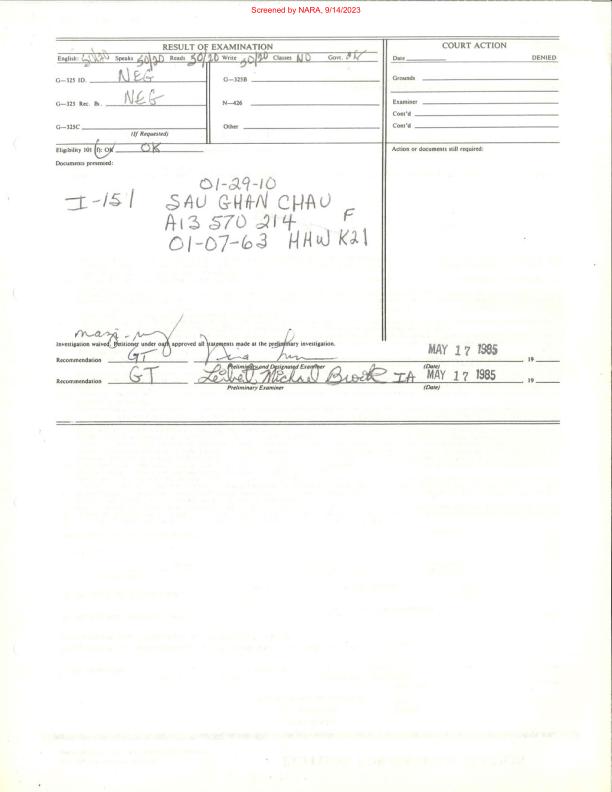 Screened by NARA, 9/14/2023
RESULT OF EXAMINATION
English: 50/20 Speaks 50/20 Reads 50/20 Write 50/20 Classes NO Govt. OK
G—325 ID. NEG
G—325B
G—325 Rec. Br. NEG
N—426
G—325C
(If Requested)
Other
Eligibility 101 (f): OK OK
Documents presented:
01-29-10
I-151 SAU GHAN CHAU
A13 570 214 F
01-07-63 HHW K21
COURT ACTION
Date DENIED
Grounds
Examiner
Cont'd
Cont'd
Action or documents still required:
Investigation waived. Petitioner under oath approved all statements made at the preliminary investigation.
Recommendation GT MAY 17 1985 19
Preliminary and Designated Examiner (Date)
Recommendation GT Michael Brock IA MAY 17 1985 19
Preliminary Examiner (Date)